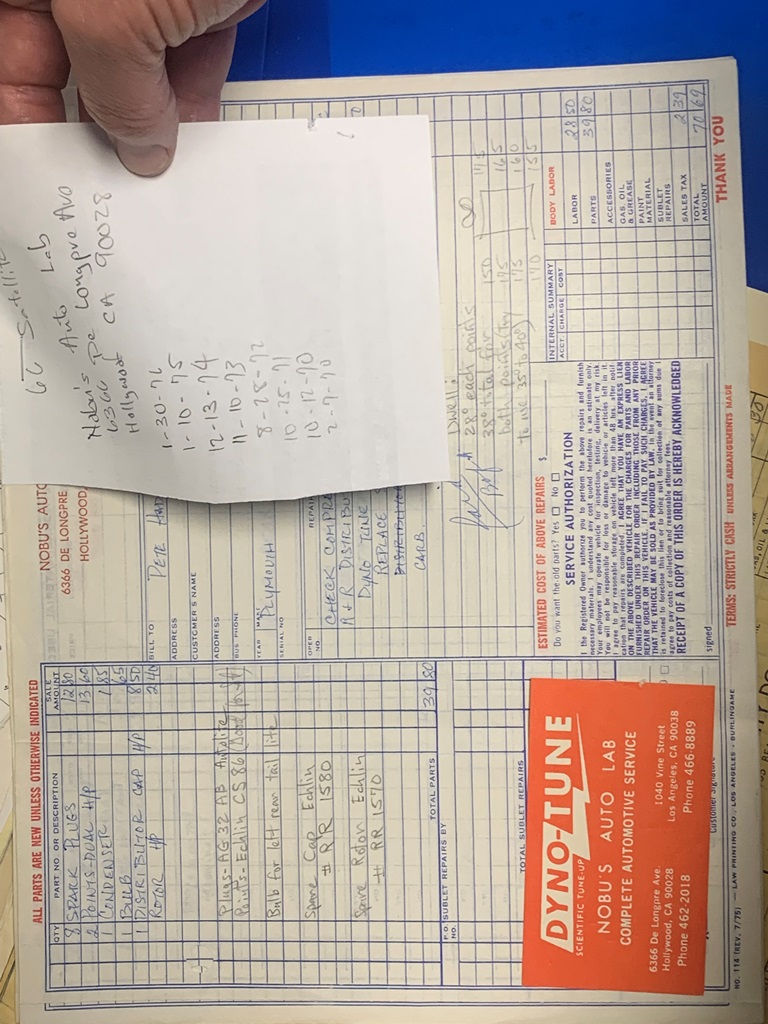 6
Satellite
Nobu's Auto Lab
6366 De Longpre Ave
Hollywood CA 90028
1-30-76
1-10-75
12-13-74
11-10-73
8-28-72
10-25-71
10-12-70
2-7-70
ALL PARTS ARE NEW UNLESS OTHERWISE INDICATED
QTY PART NO. OR DESCRIPTION SALE AMOUNT
8 SPARK PLUGS 12 80
2 POINTS-DUAL H/P 13 60
1 CONDENSER 1 85
1 BULB 65
1 DISTRIBUTOR CAP H/P 8 50
ROTOR H/P 2 40
Plugs-AG32 AB Autolite
Points-Echlin CS86
Bulb for left rear tail lite
Spare Cap Echlin
# RR 1580
Spare Rotor Echlin
# RR 1570
TOTAL PARTS 39 80
P.O. NO. SUBLET REPAIRS BY
TOTAL SUBLET REPAIRS
DYNO-TUNE
SCIENTIFIC TUNE-UP
NOBU'S AUTO LAB
COMPLETE AUTOMOTIVE SERVICE
6366 De Longpre Ave. 1040 Vine Street
Hollywood, CA 90028 Los Angeles, CA 90038
Phone 462-2018 Phone 466-8889
NO. 114 (REV. 7/75) — LAW PRINTING CO., LOS ANGELES - BURLINGAME
NOBU'S AUTO
6366 DE LONGPRE
HOLLYWOOD
BILL TO PETE
ADDRESS
CUSTOMER'S NAME
ADDRESS
BUS. PHONE
YEAR MAKE PLYMOUTH
SERIAL NO
OPER. NO. REPAIR
CHECK COMPR
A & R DISTRIBU
DYNO TUNE
REPLACE
DISTRIBUTOR
CARB
Dwell:
28° each points
38° total for
both points (try
to use 35° to 40°)
150 175
175 165
175 160
170 155
ESTIMATED COST OF ABOVE REPAIRS $
Do you want the old parts? Yes □ No □
SERVICE AUTHORIZATION
I the Registered Owner authorize you to perform the above repairs and furnish
necessary materials. I understand any cost quoted heretofore is an estimate only.
Your employees may operate vehicle for inspection, testing, delivery at my risk.
You will not be responsible for loss or damage to vehicle or articles left in it.
I agree to pay reasonable storage on vehicle left more than 48 hrs. after notifi-
cation that repairs are completed. I AGREE THAT YOU HAVE AN EXPRESS LIEN
ON THE ABOVE DESCRIBED VEHICLE FOR THE CHARGES FOR PARTS AND LABOR
FURNISHED UNDER THIS REPAIR ORDER INCLUDING THOSE FROM ANY PRIOR
REPAIR ORDER ON THIS VEHICLE. IF I FAIL TO PAY SUCH CHARGES, I AGREE
THAT THE VEHICLE MAY BE SOLD AS PROVIDED BY LAW. In the event an attorney
is retained to foreclose this lien or to bring suit for collection of any sums due I
agree to pay costs of collection and reasonable attorney fees.
RECEIPT OF A COPY OF THIS ORDER IS HEREBY ACKNOWLEDGED
signed
INTERNAL SUMMARY
ACCT. CHARGE COST
BODY LABOR
LABOR 28 50
PARTS 39 80
ACCESSORIES
GAS, OIL & GREASE
PAINT MATERIAL
SUBLET REPAIRS
SALES TAX 2 39
TOTAL AMOUNT 70 69
TERMS: STRICTLY CASH UNLESS ARRANGEMENTS MADE
THANK YOU